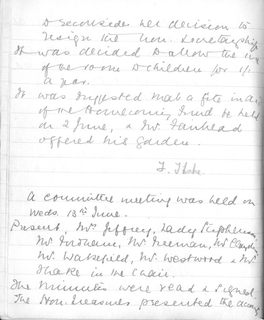 to reconsider her decision to
resign the Hon. Secretaryship.
It was decided to allow the use
of the room to children for 1/-
a year.
It was suggested that a fete in aid
of the Homecoming Fund be held
on 2 June, & Mr
offered his garden.
A committee meeting was held on
Weds 13th June.
Present, Mrs Jeffrey, Lady Stephenson,
Mr Freeman, Mr
Mr Wakefield, Mr Westwood & Mr
Thake in the Chair.
The Minutes were read & signed.
The Hon. Treasurer presented the